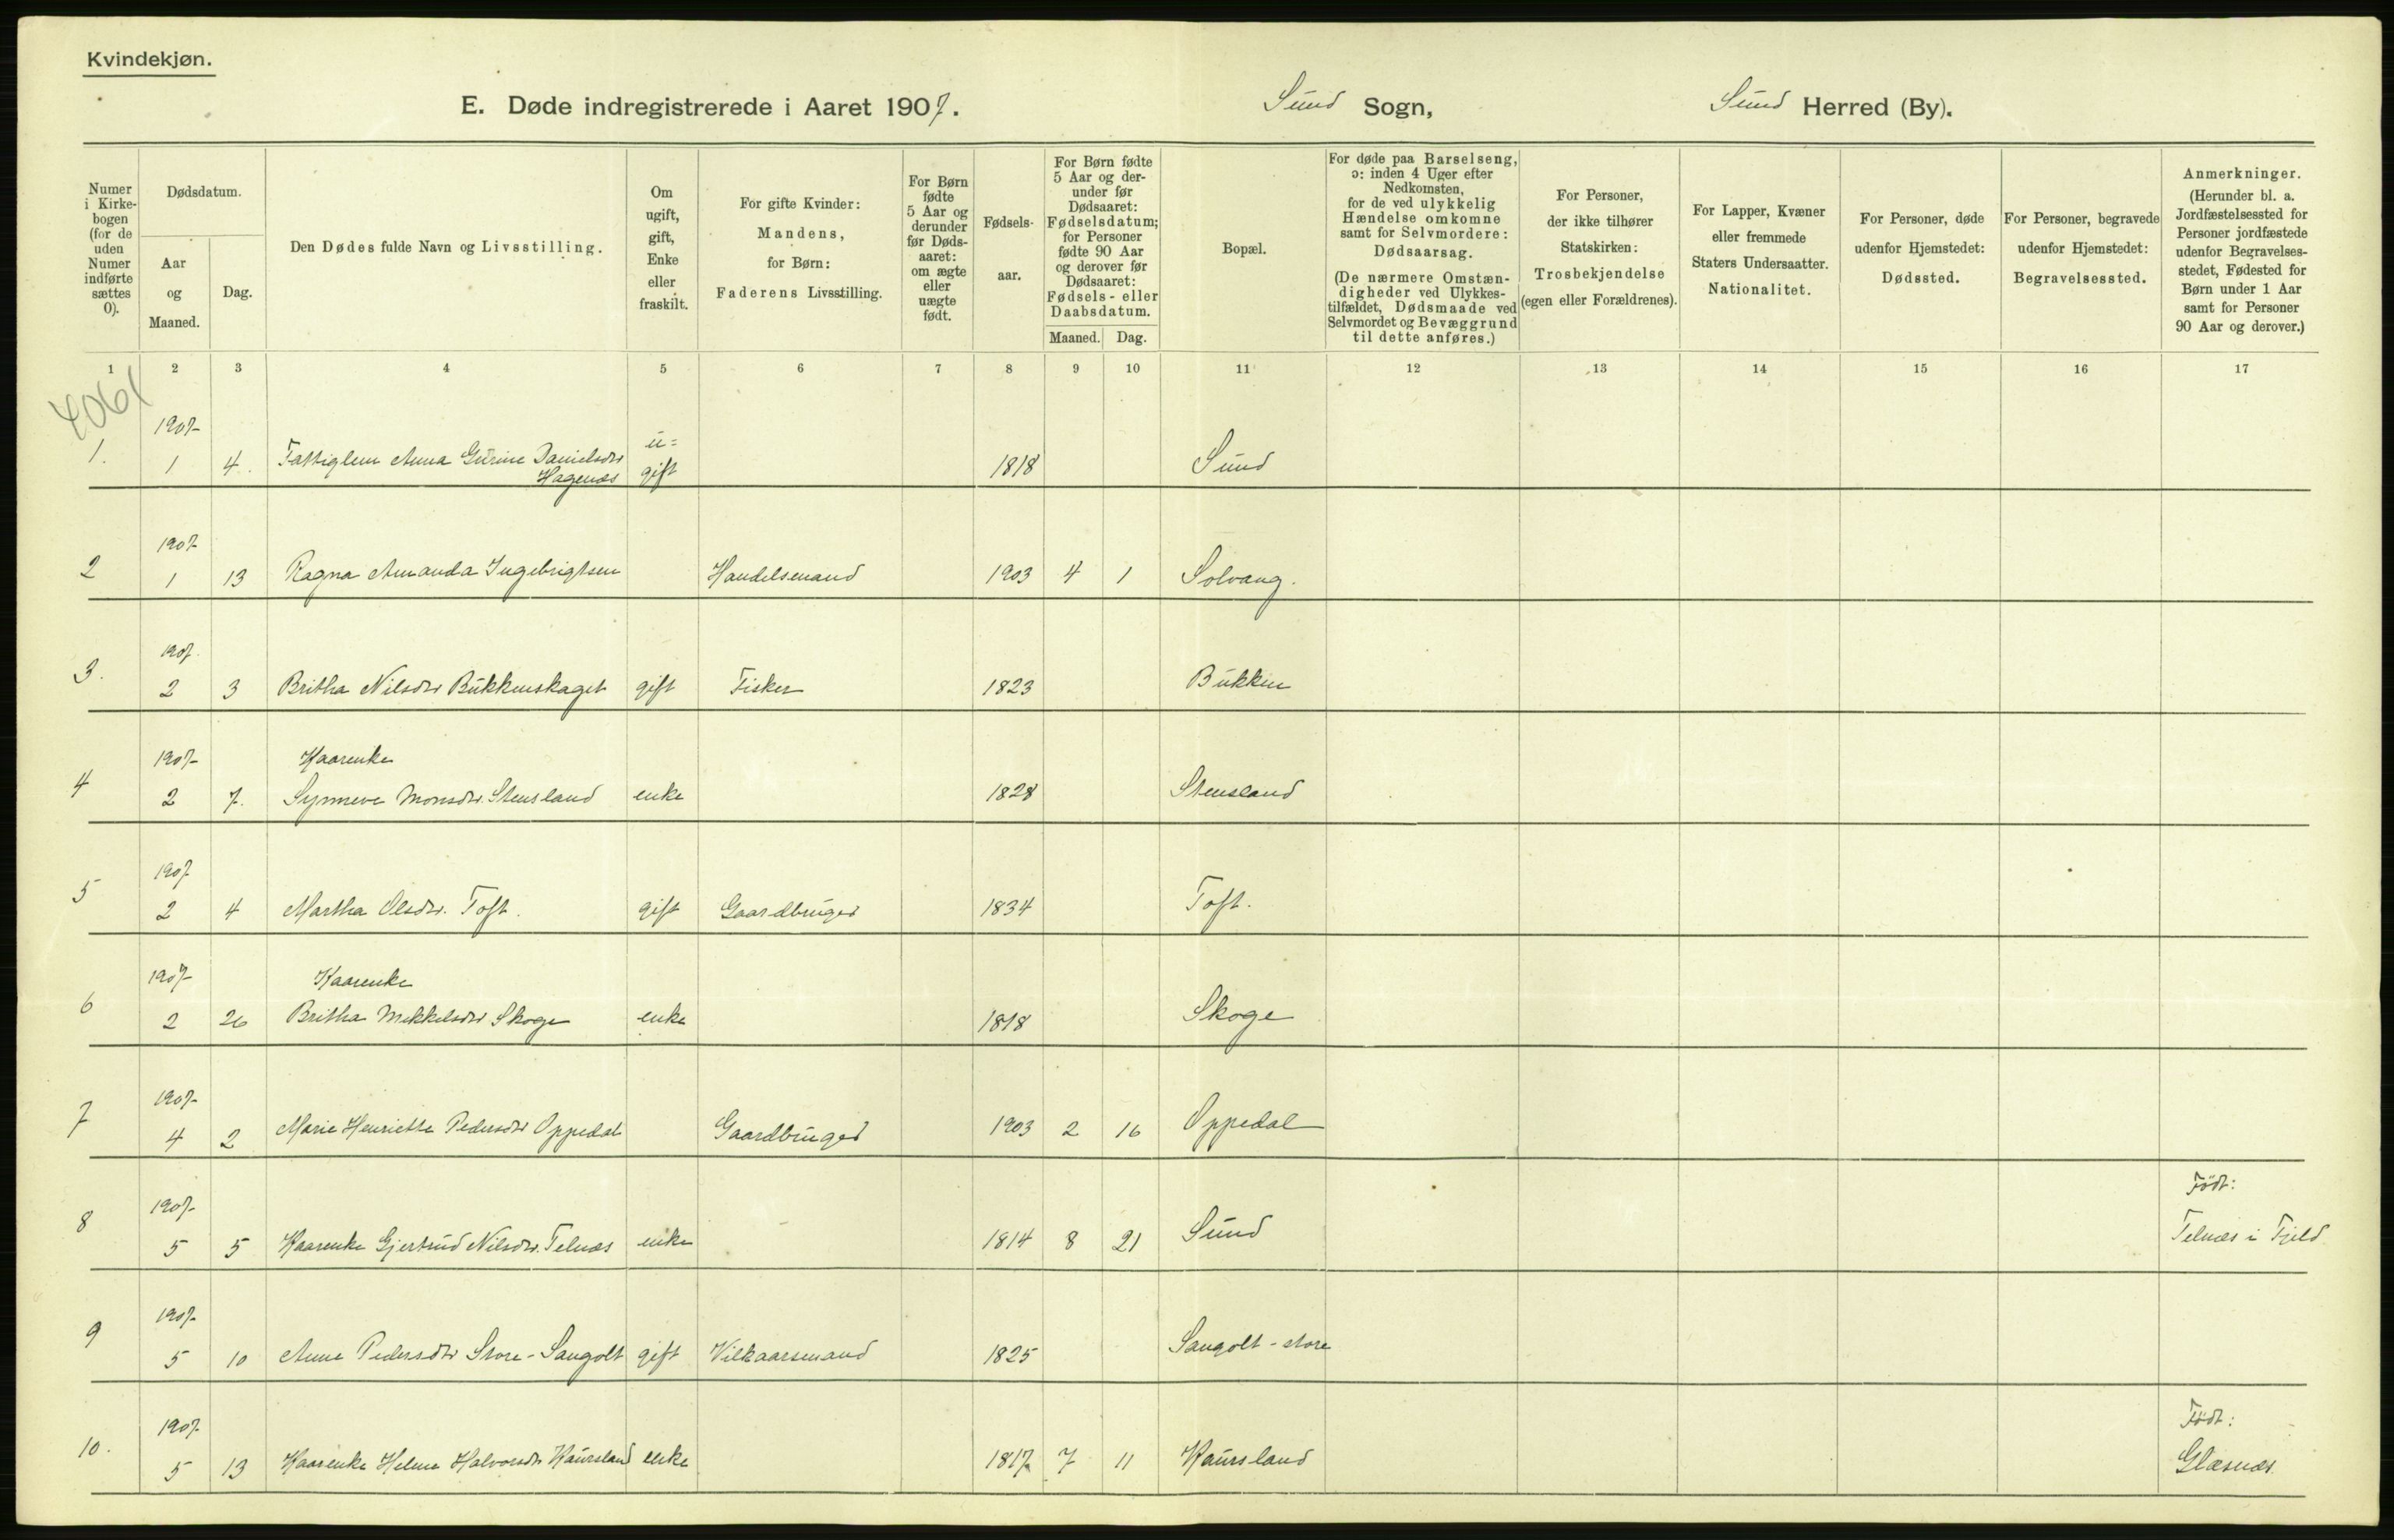 Kvindekjøn.
E. Døde indregistrerede i Aaret 1907. Sund Sogn, Sund Herred (By).
Numer i Kirkebogen (for de uden Numer indførte sættes 0).
Dødsdatum.
Aar og Maaned.
Dag.
Den Dødes fulde Navn og Livsstilling.
Om ugift, gift, Enke eller fraskilt.
For gifte Kvinder: Mandens, for Børn: Faderens Livsstilling.
For Børn fødte 5 Aar og derunder før Dødsaaret: om ægte eller uægte født.
Fødselsaar.
For Børn fødte 5 Aar og derunder før Dødsaaret: Fødselsdatum; for Personer fødte 90 Aar og derover før Dødsaaret: Fødsels- eller Daabsdatum.
Maaned. Dag.
Bopæl.
For døde paa Barselseng, ɔ: inden 4 Uger efter Nedkomsten, for de ved ulykkelig Hændelse omkomne samt for Selvmordere: Dødsaarsag. (De nærmere Omstændigheder ved Ulykkestilfældet, Dødsmaade ved Selvmordet og Bevæggrund til dette anføres.)
For Personer, der ikke tilhører Statskirken: Trosbekjendelse (egen eller Forældrenes).
For Lapper, Kvæner eller fremmede Staters Undersaatter. Nationalitet.
For Personer, døde udenfor Hjemstedet: Dødssted.
For Personer, begravede udenfor Hjemstedet: Begravelsessted.
Anmerkninger. (Herunder bl. a. Jordfæstelsessted for Personer jordfæstede udenfor Begravelsesstedet, Fødested for Børn under 1 Aar samt for Personer 90 Aar og derover.)
1 2 3 4 5 6 7 8 9 10 11 12 13 14 15 16 17
4061
1907 u=
1. 1 4. Fattiglem Anna Gurine Danielsdr gift 1818 Sund
Hagenæs
1907
2 1 13 Ragna Amanda Ingebrigtsen Handelsmand 1903 4 1 Solvang.
1907.
3. 2 3 Britha Nilsdr Bukkenskaget gift Fisker 1823 Bukken
1907 Kaarenke
4 2 7. Synneve Monsdr. Stensland enke 1828 Stensland
1907
5 2 4 Martha Olsdr. Toft. gift Gaardbruger 1834 Toft.
1907 Kaarenke
6 2 26 Britha Mikkelsdr Skoge enke 1818 Skoge
1907
7 4 2 Marie Henriette Pedersdr Oppedal Gaardbruger 1903 2 16 Oppedal
1907 Født:
8 5 5 Kaarenke Gjertrud Nilsdr. Telnæs enke 1814 8 21 Sund Telnæs i Fjeld
1907
9 5 10 Anne Pedersdr Store-Sangolt gift Vilkaarsmand 1825 Sangolt - store
1907 Født:
10. 5 13 Kaarenke Helene Halvorsdr Kausland enke 1817 7 11 Kausland Glæsnæs.